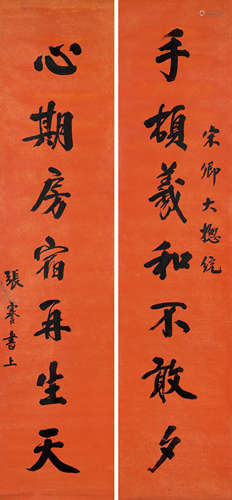 宋卿大總統
手頓羲和不敢夕
心期房宿再生天
張謇書上